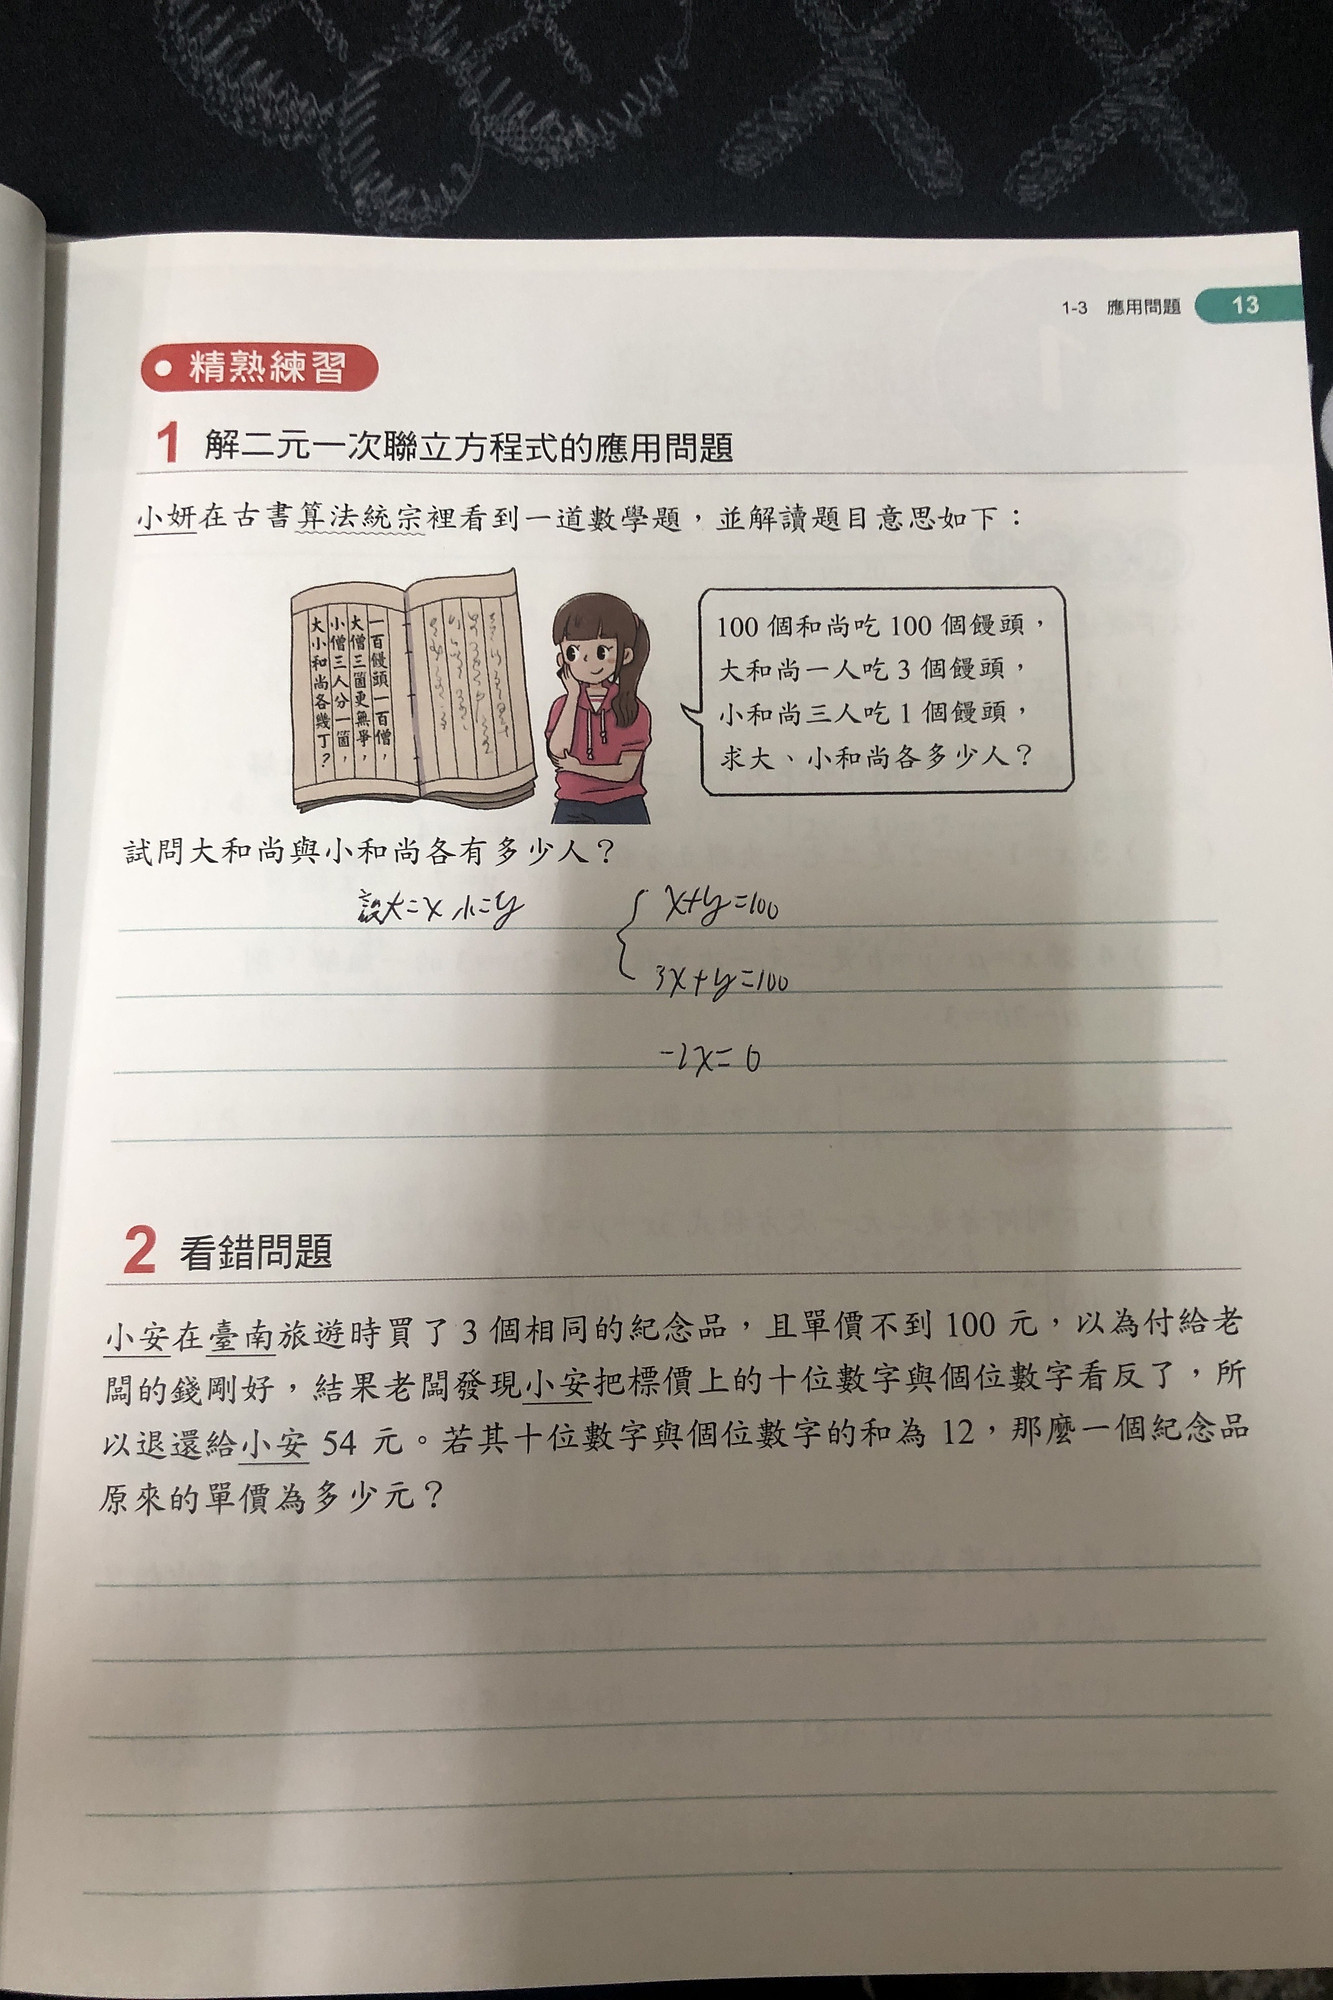 1-3 應用問題 13
精熟練習
1 解二元一次聯立方程式的應用問題
小妍在古書算法統宗裡看到一道數學題，並解讀題目意思如下：
一百饅頭一百僧，
大僧三箇更無爭，
小僧三人分一箇，
大小和尚各幾丁？
100 個和尚吃 100 個饅頭，
大和尚一人吃 3 個饅頭，
小和尚三人吃 1 個饅頭，
求大、小和尚各多少人？
試問大和尚與小和尚各有多少人？
設大=x 小=y
x+y=100
3x+y=100
-2x=0
2 看錯問題
小安在臺南旅遊時買了 3 個相同的紀念品，且單價不到 100 元，以為付給老
闆的錢剛好，結果老闆發現小安把標價上的十位數字與個位數字看反了，所
以退還給小安 54 元。若其十位數字與個位數字的和為 12，那麼一個紀念品
原來的單價為多少元？